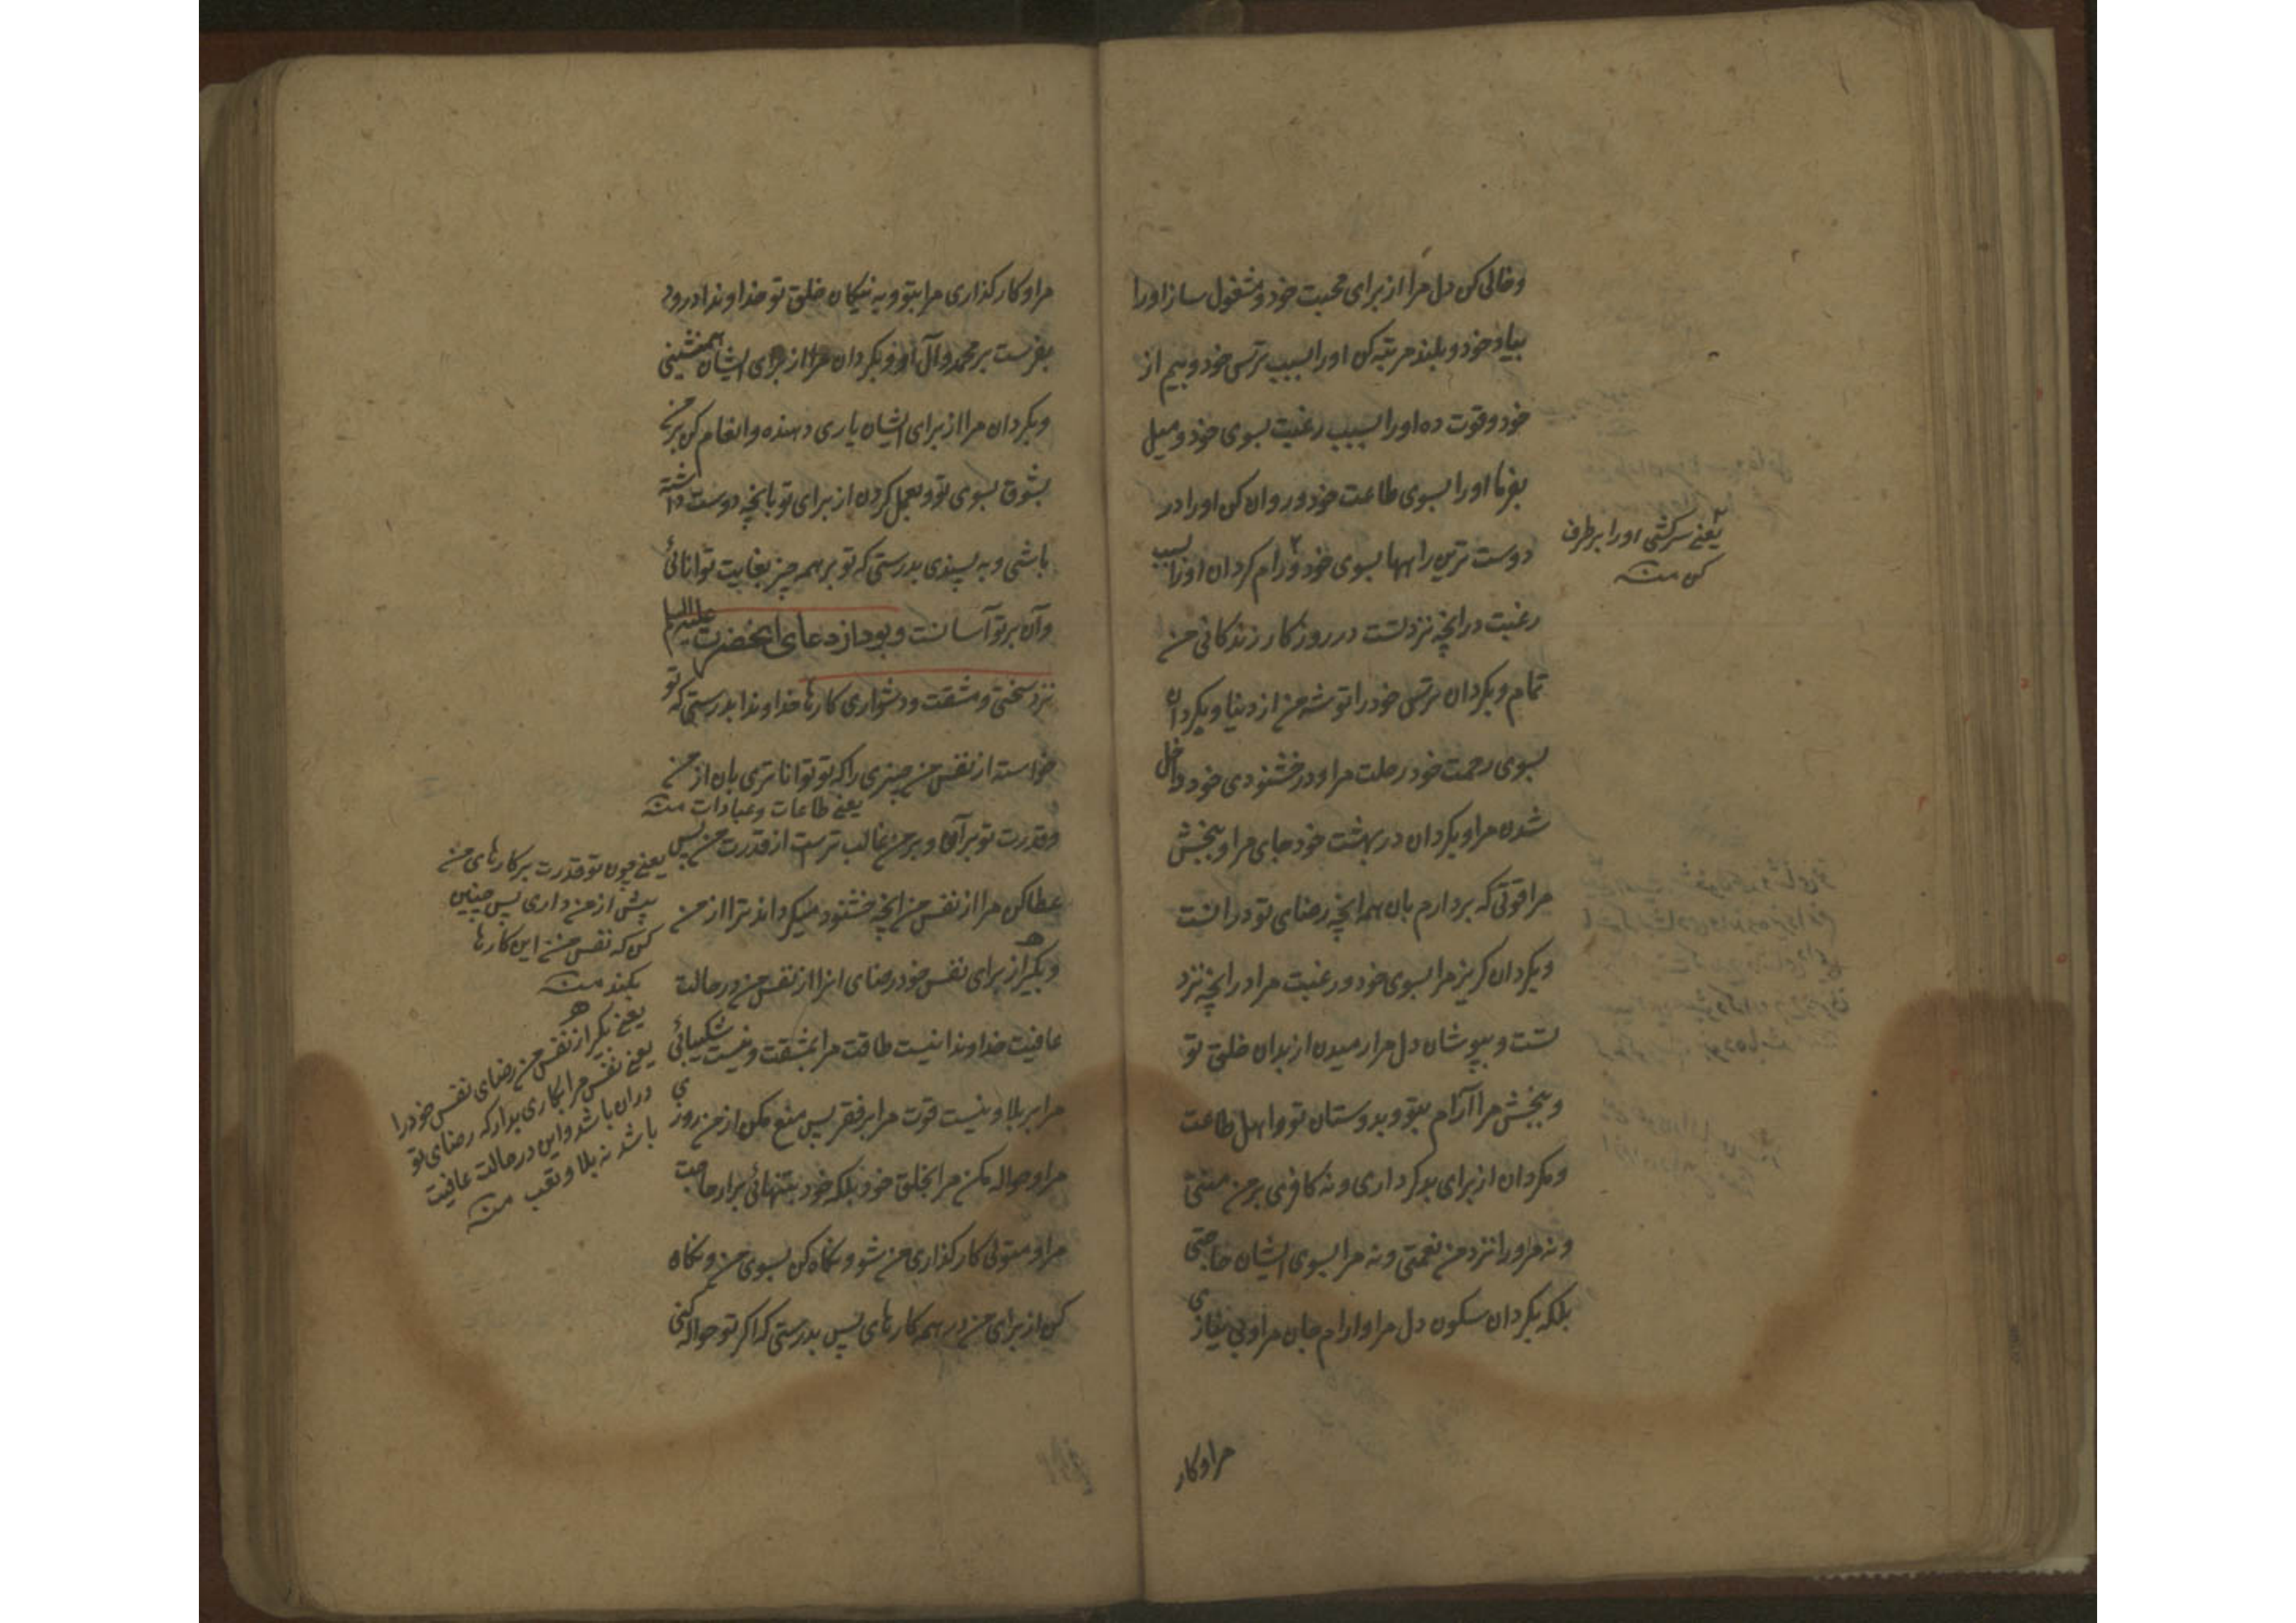 وخالی کن دل مرا از برای محبت خود و مشغول ساز اورا
بیاد خود و بلند مرتبه کن اورا بسبب ترس خود و بیم از
خود و قوت ده اورا بسبب رغبت بسوی خود و میل
بفرما اورا بسوی طاعت خود و روان کن اورا در
دوست ترین راهها بسوی خود و رام کردان اورا بسبب
یعنی سرکشی اورا برطرف
کن منه
رغبت در انچه نزد تست در روزکار زندکانی من
تمام و بکردان ترس خود را توشه من از دنیا و بکردان
بسوی رحمت خود رحلت مرا و در خشنودی خود داخل
شدن مرا و بکردان در بهشت خود جای مرا و ببخش
مرا قوتی که بردارم بان همه انچه رضای تو در انست
و بکردان کریز مرا بسوی خود و رغبت مرا در انچه نزد
تست و بپوشان دل مرا رمیدن از بدان خلق تو
و ببخش مرا آرام بتو و بدوستان تو و اهل طاعت
و مکردان از برای بدکرداری و نه کافری بر من منتی
و نه مر اورا نزد من نعمتی و نه مرا بسوی ایشان حاجتی
بلکه بکردان سکون دل مرا و ارام جان مرا و بی نیازی
مرا و کار
مرا و کارکذاری مرا بتو و به نیکان خلق تو خداوندا درود
بفرست بر محمد و آل او و بکردان مرا از برای ایشان همنشینی
و بکردان مرا از برای ایشان یاری دهنده و انعام کن بر من
بشوق بسوی تو و بعمل کردن از برای تو بانچه دوست داشته
باشی و به پسندی بدرستی که تو بر همه چیز بغایت توانائی
و آن بر تو آسانست و بود از دعای انحضرت علیه السلام
نزد سختی و مشقت و دشواری کارها خداوندا بدرستی که تو
خواسته از نفس من چیزی را که تو توانا تری بان از من
یعنی طاعات و عبادات منه
و قدرت تو بر آن و بر من غالب ترست از قدرت من پس
عطا کن مرا از نفس من انچه خشنود میکرداند ترا از من
و بکیر از برای نفس خود رضای انرا از نفس من در حالت
عافیت خداوندا نیست طاقت مرا بمشقت و نیست شکیبائی
مرا بر بلا و نیست قوت مرا بر فقر پس منع مکن از من روزی
مرا و حواله مکن مرا بخلق خود بلکه خود بتنهائی برار حاجت
مرا و متولی کارکذاری من شو و نکاه کن بسوی من و نکاه
کن از برای من در همه کارهای پس بدرستی که اکر تو حواله کنی
یعنی چون تو قدرت بر کارهای من
پیش از من داری پس چنین
کن که نفس من این کارها
بکند منه
یعنی بکیر از نفس من رضای نفس خود را
یعنی نفس مرا بکاری بدار که رضای تو
دران باشد و این در حالت عافیت
باشد نه بلا و تعب منه